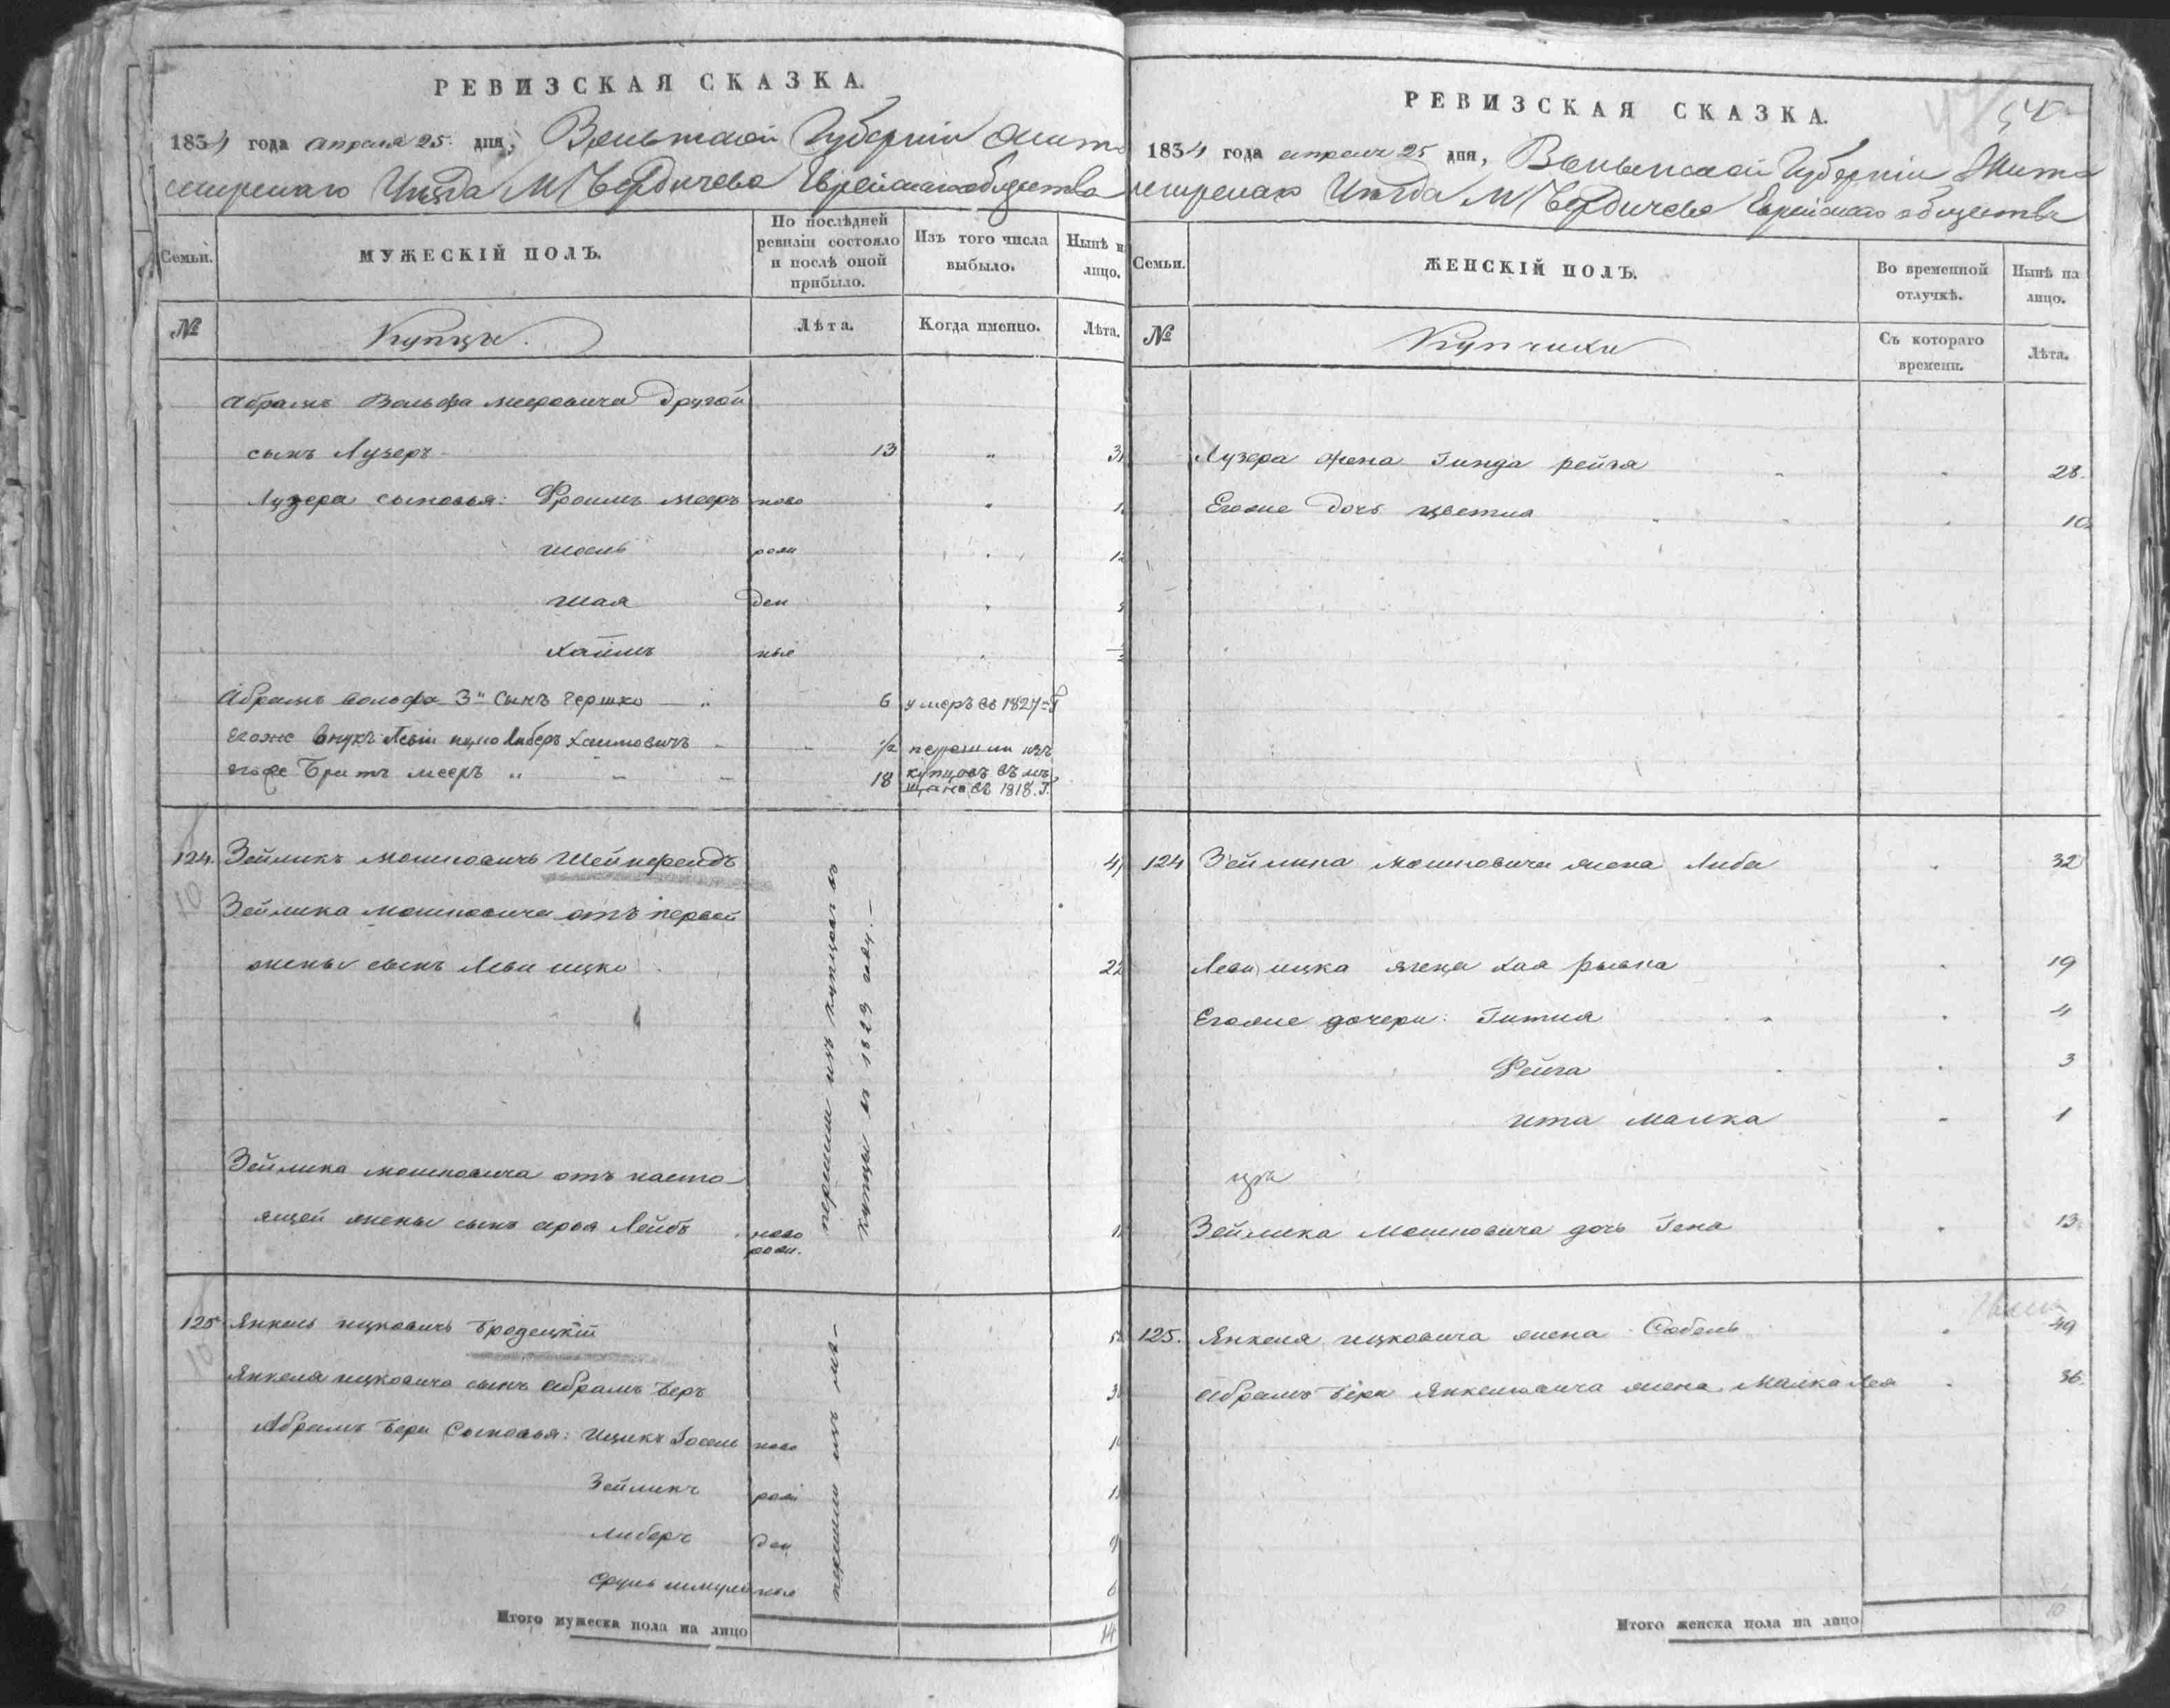 РЕВИЗСКАЯ СКАЗКА.
1834 года апреля 25 дня, Волынской Губерніи Жито
мирскаго Уѣзда М Бердичева Еврейскаго общества
Семьи.
МУЖЕСКІЙ ПОЛЪ.
По послѣдней ревизіи состояло и послѣ оной прибыло.
Изъ того числа выбыло.
Нынѣ на лицо.
№
Купцы.
Лѣта.
Когда именно.
Лѣта.
Абрамъ Вольфа Мееровича другой
сынъ Лузеръ 13 " 31
Лузера сыновья: Фроимъ Мееръ ново
рож
Шая ден
Хаимъ ные
Абрамъ Вольфа 3й сынъ Гершко 6 умеръ въ 1827 Г
Егоже внукъ Хаимовичъ 1/2 перешли изъ
егоже братъ Мееръ " 18 купцовъ въ мѣ
щане въ 1818. Г.
124. Зейликъ Мошковичъ Шейнфельдъ
Зейлика Мошковича отъ первой
жены сынъ Леви Ицко 22
Зейлика Мошковича отъ насто
ящей жены сынъ Арья Лейбъ ново
рож.
перешли изъ купцовъ въ
купцы въ 1829 году.
125 Янкель Ицковичъ Бродецкій
Янкеля Ицковича сынъ Абрамъ Беръ
Абрамъ Бера Сыновья: Ицикъ Іосель ново
Зейликъ рож
Либеръ ден
Сруль Шмуль ные
перешли изъ мѣ-
Итого мужеска пола на лицо 14
РЕВИЗСКАЯ СКАЗКА.
1834 года апреля 25 дня, Волынской Губерніи Жито
мирскаго Уѣзда М Бердичева Еврейскаго общества
Семьи.
ЖЕНСКІЙ ПОЛЪ.
Во временной отлучкѣ.
Нынѣ на лицо.
№
Купчихи
Съ котораго времени.
Лѣта.
Лузера жена Гинда Рейза 28.
Егоже дочь Цветля 10.
124 Зейлика Мошковича жена Либа 32
Леви Ицка жена Хая Рывка 19
Егоже дочери: Гитля 4
Фейга 3
Ита Малка 1
Зейлика Мошковича дочь Гена 13.
125. Янкеля Ицковича жена Собель 49
Абрамъ Бера Янкелевича жена Малка Лея 36.
Итого женска пола на лицо 10